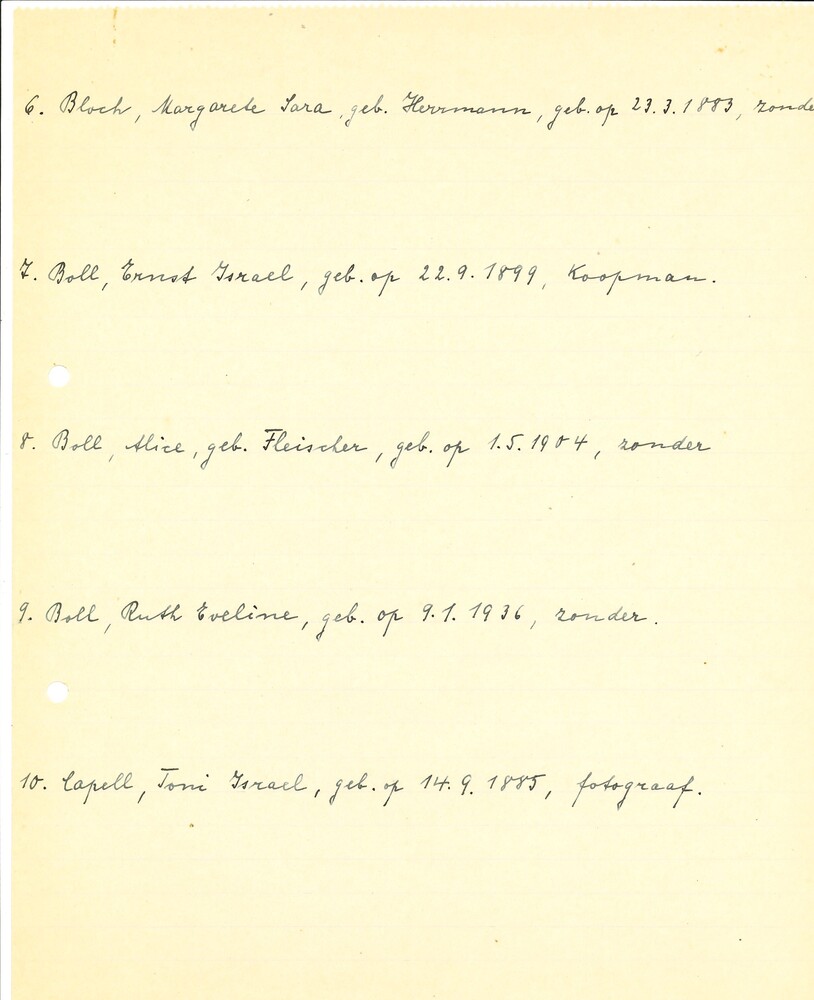 6. Bloch, Margarete Sara, geb. Herrmann, geb. op 23.3.1883, zonde
7. Boll, Ernst Israel, geb. op 22.9.1899, Koopman.
8. Boll, Alice, geb. Fleischer, geb. op 1.5.1904, zonder
9. Boll, Ruth Eveline, geb. op 9.1.1936, zonder.
10. Capell, Toni Israel, geb. op 14.9.1885, fotograaf.